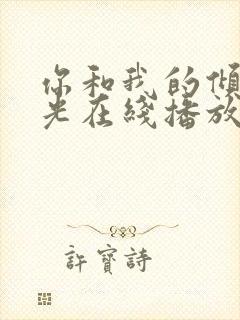 你和我的傾
光在綫播放
許寶詩